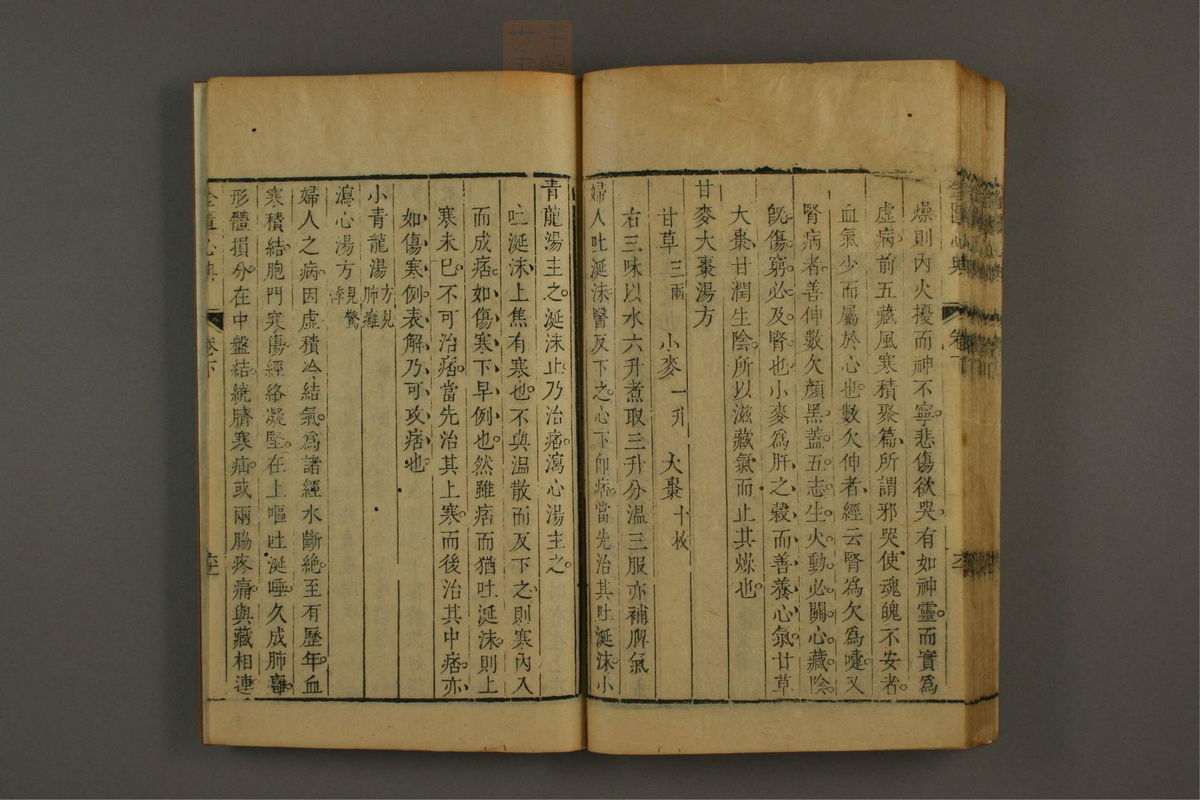 燥則內火擾而神不寧悲傷欲哭有如神靈而實爲
虛病前五藏風寒積聚篇所謂邪哭使魂魄不安者
血氣少而屬於心也數欠伸者經云腎爲欠爲嚏又
腎病者善伸數欠顏黑蓋五志生火動必關心藏陰
旣傷窮必及腎也小麥爲肝之穀而善養心氣甘草
大棗甘潤生陰所以滋藏氣而止其燥也
甘麥大棗湯方
甘草三兩 小麥一升 大棗十枚
右三味以水六升煮取三升分溫三服亦補脾氣
婦人吐涎沫醫反下之心下卽痞當先治其吐涎沫小
青龍湯主之涎沫止乃治痞瀉心湯主之
吐涎沫上焦有寒也不與温散而反下之則寒內入
而成痞如傷寒下早例也然雖痞而猶吐涎沫則上
寒未已不可治痞當先治其上寒而後治其中痞亦
如傷寒例表解乃可攻痞也
小青龍湯方見肺癰
瀉心湯方見驚悸
婦人之病因虛積冷結氣爲諸經水斷絶至有歷年血
寒積結胞門寒傷經絡凝堅在上嘔吐涎唾久成肺癰
形體損分在中盤結繞臍寒疝或兩脇疼痛與藏相連
金匱心典 卷下